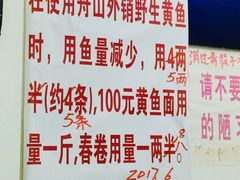 在使用舟山外销野生黄鱼
时，用鱼量减少，用4两
5两
半(约4条),100元黄鱼面用
5条
量一斤,春卷用量一两半。
8.
2017.6
消边
请不要
的陋习